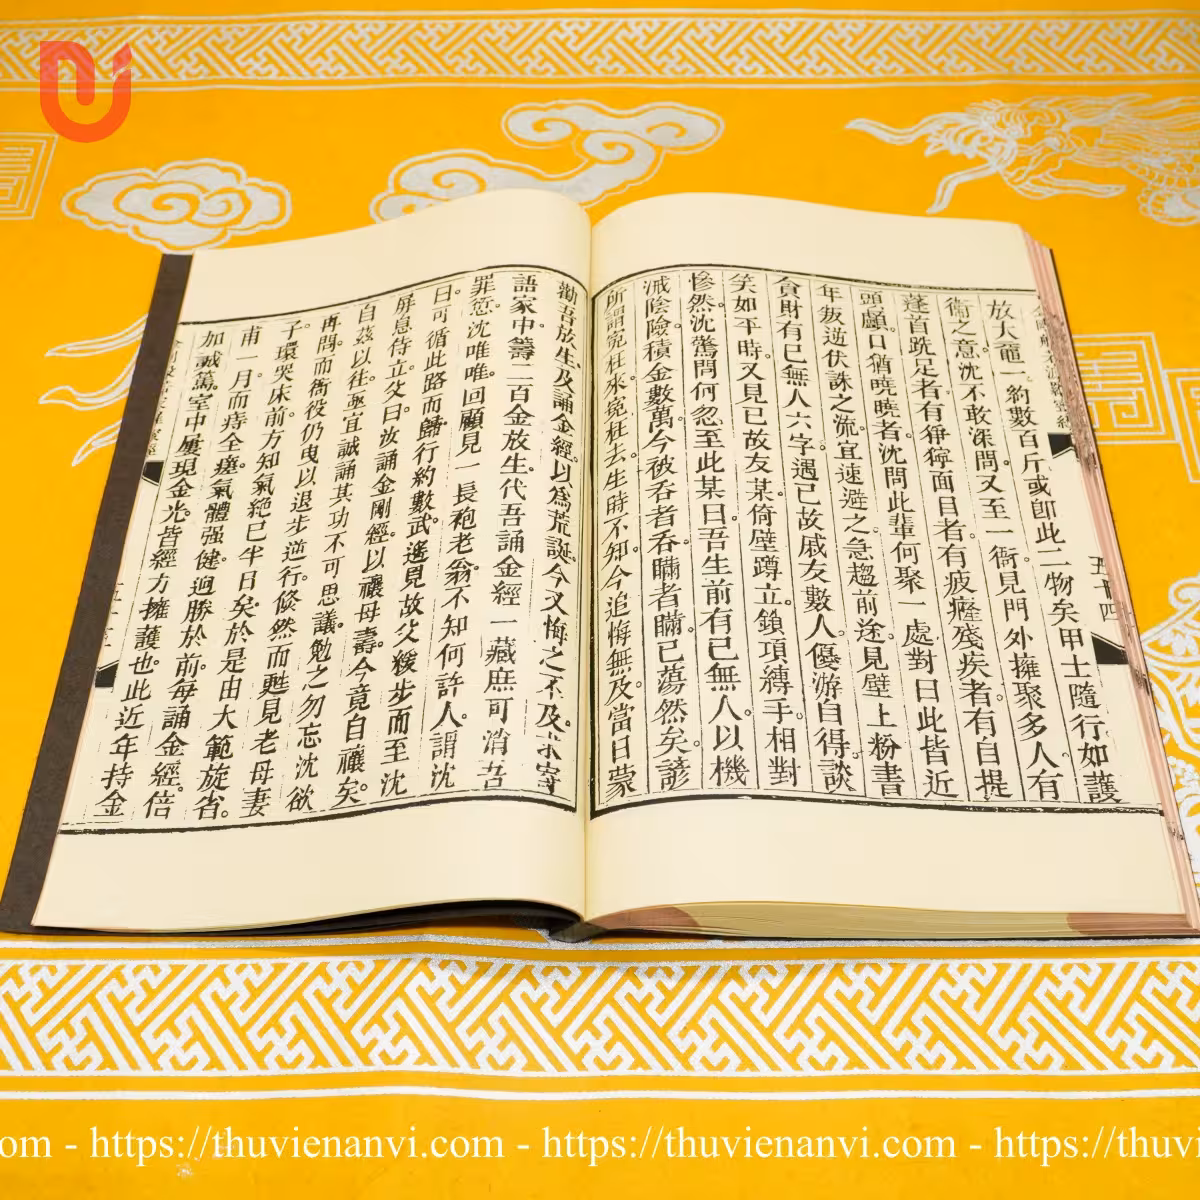 放大黿一約數百斤或卽此二物矣甲士隨行如護
衞之意沈不敢深問又至一衙見門外擁聚多人有
蓬首跣足者有猙獰面目者有疲癃殘疾者有自提
頭顱口猶曉曉者沈問此輩何聚一處對曰此皆近
年叛逆伏誅之流宜速避之急趨前途見壁上粉書
貪財有己無人六字遇已故戚友數人優游自得談
笑如平時又見已故友某倚壁蹲立鎖項縛手相對
慘然沈驚問何忽至此某曰吾生前有己無人以機
械陰險積金數萬今被吞者吞瞞者瞞已蕩然矣諺
所謂寃枉來寃枉去生時不知今追悔無及當日蒙
勸吾放生及誦金經以爲荒誕今又悔之不及求寄
語家中籌二百金放生代吾誦金經一藏庶可消吾
罪愆沈唯唯回顧見一長袍老翁不知何許人謂沈
曰可循此路而歸行約數武遙見故父緩步而至沈
屏息侍立父曰汝誦金剛經以禳母壽今竟自禳矣
自茲以往亟宜誠誦其功不可思議勉之勿忘沈欲
再問而衙役仍曳以退步逆行倏然而甦見老母妻
子環哭床前方知氣絶已半日矣於是由大範旋省
甫一月而痔全瘥氣體强健迥勝於前每誦金經倍
加誠篤室中屢現金光皆經方擁護也此近年持金
五十四
https://thuvienanvi.com - https://thuvienanvi.com